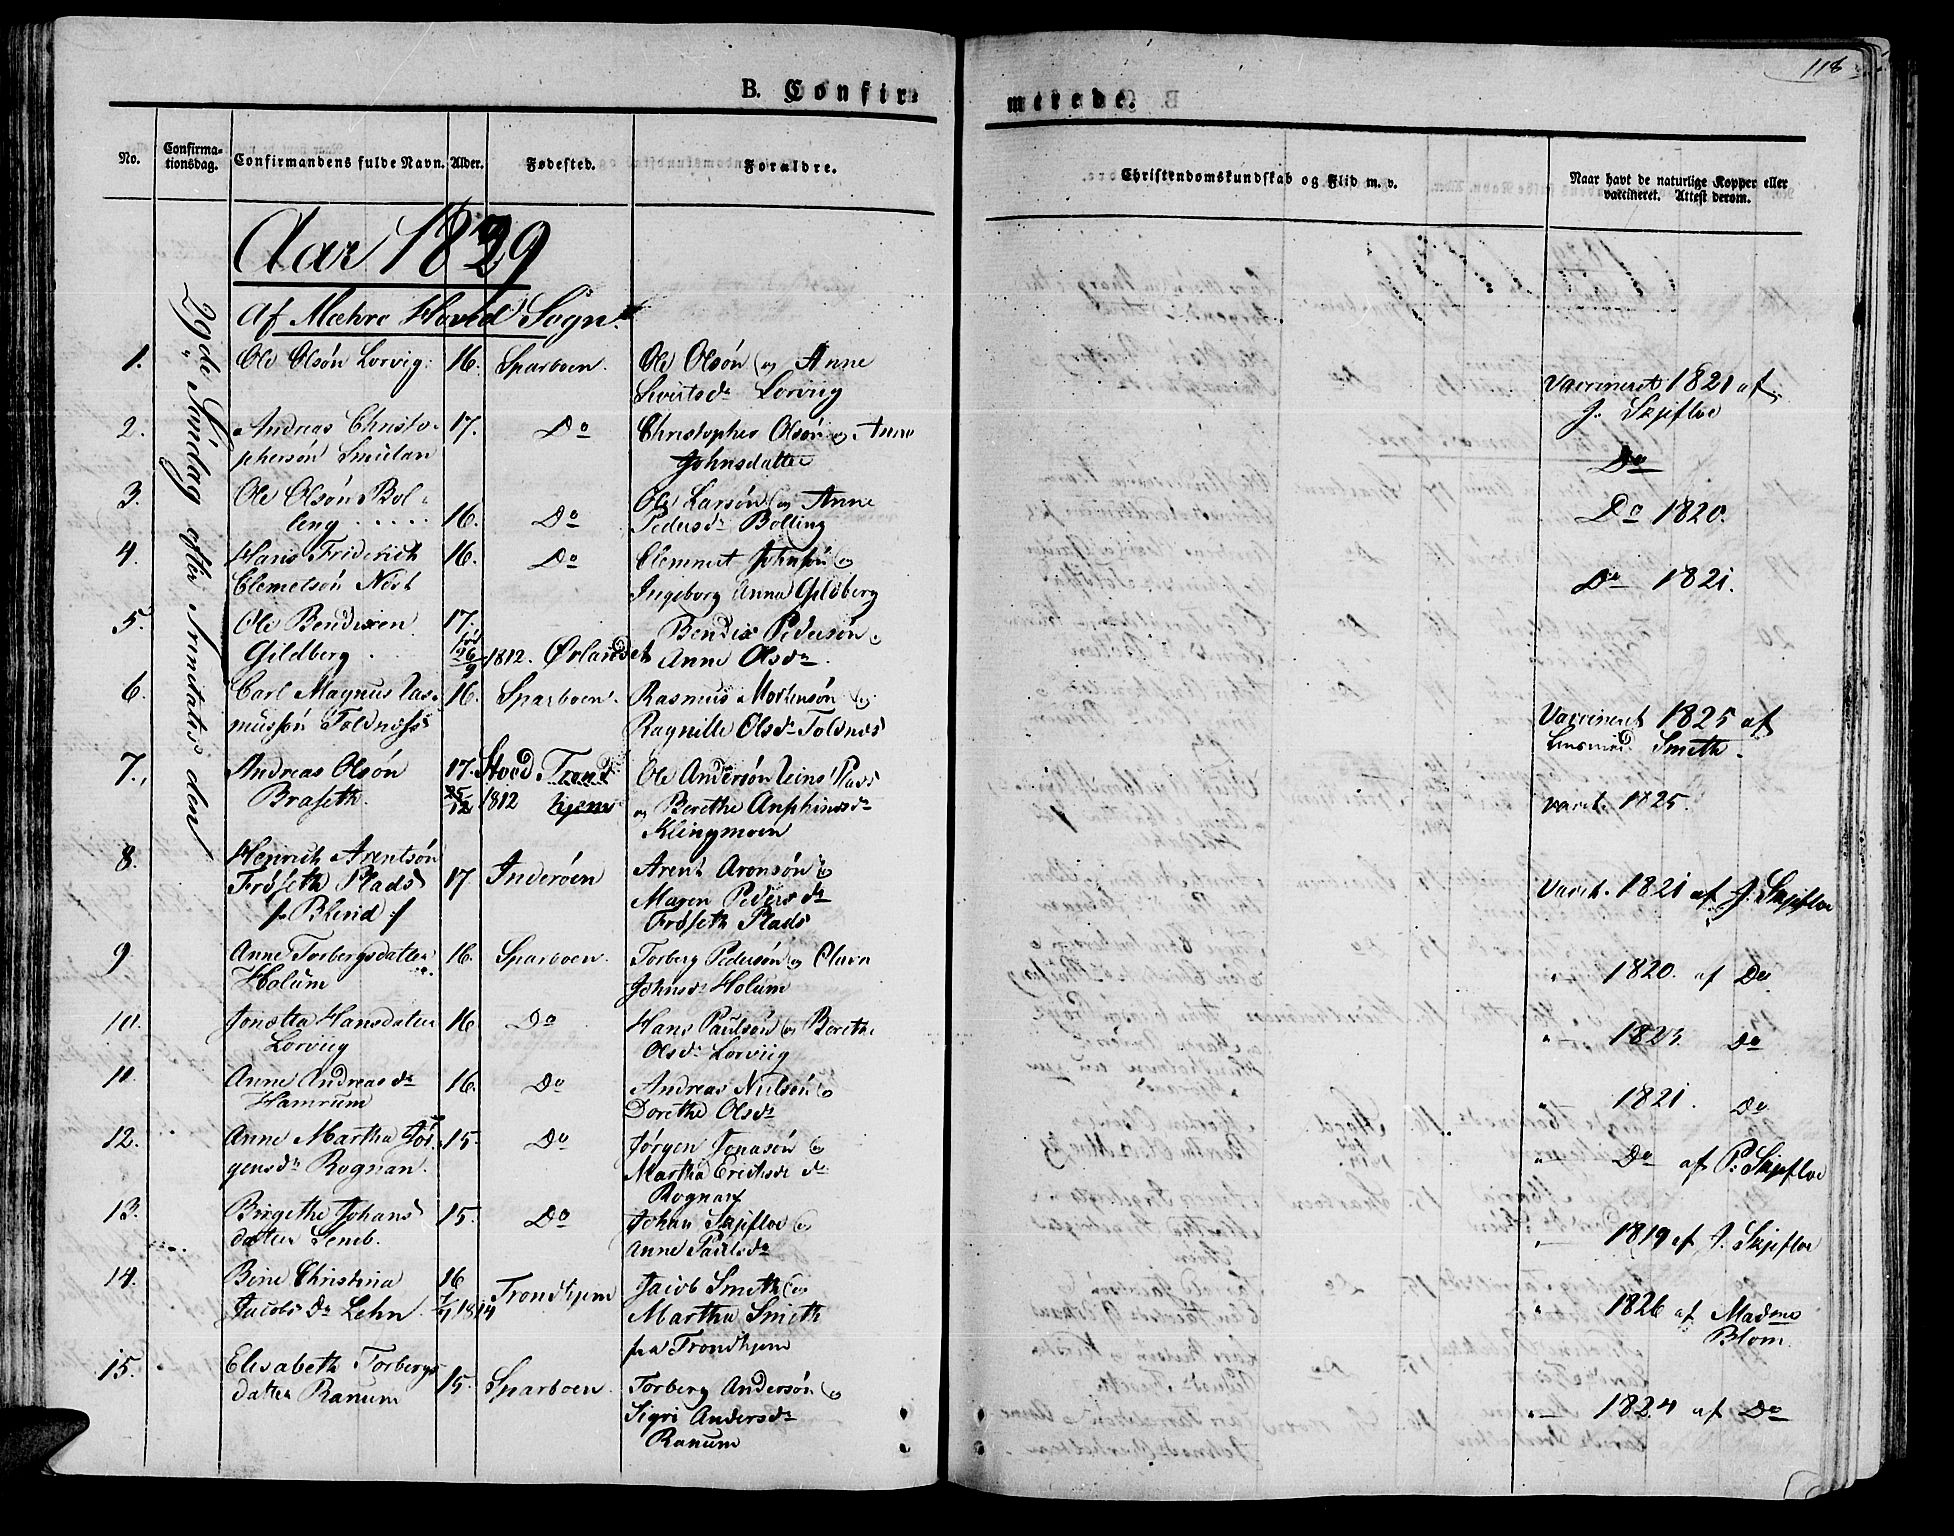 118
B. Confir-
merede.
No.
Confirma-
tionsdag.
Confirmandens fulde Navn.
Alder.
Fødested.
Foraldre.
Christendomskundskab og Flid m. v.
Naar havt de naturlige Kopper eller
vaccineret. Attest derom.
Aar 1829
Af Mæhre Hoved Sogn.
1. Ole Olsøn Lorvig. 16. Sparboen. Ole Olsøn og Anne
Sivertsdr Lorviig
Vaccineret 1821 af
J. Skjefloe
2. Andreas Christo-
phersøn Smulan 17. Do Christopher Olsøn og Anne
Johnsdatter
Do
3. Ole Olsøn Bol-
leng 16. Do Ole Larsøn og Anne
Pedersdr Bolling
Do 1820.
4. Hans Friderich
Clemetsøn Næst 16. Do Clemmet Johnsøn og
Ingeborg Anna Gildberg
Do 1821.
5. Ole Bendixen
Gildberg 17. 26/9 1812. Ørlandet Bendix Pedersøn
Anne Olsdr.
6. Carl Magnus Ras-
mussøn Toldnæss 16. Sparboen. Rasmus Mortensøn og
Ragnille Olsdr Toldnæs
Vaccineret 1825 af
Lensmd. Smeth.
7. Andreas Olsøn
Braseth. 17. 25/12 1812 Stoed Trond-
hjem Ole Andersøn Plads
og Berethe Anphindsdr
Klingmoen
vacct. 1825.
8. Henrich Arentsøn
Frøseth Plads
Blind 17 Inderøen Arent Aronsøn og
Maren Pedersdr
Frøseth Plads
Vacct. 1821 af J. Skjefloe
9 Anne Torbergsdatter
Holum 16. Sparboen. Torberg Pedersøn og Olava
Johnsdr Holum
" 1820. af Do.
10. Jonetta Hansdatter
Lorviig 16 Do Hans Paulsøn og Berethe
Olsdr Lorviig
"— 1823. Do
11. Anne Andreasdr
Hamrum 16. Do Andreas Nielsøn og
Dorethe Olsdr
" 1821. Do
12. Anne Martha Jør-
gensdr Rognan. 15. Do Jørgen Jonasøn og
Martha Ericksdr
Rognan
"— Do af P. Skjefloe
13. Birgethe Johans
datter Semb. 15. Do Johan Skjefloe og
Anne Paulsdr
"— 1819 af J. Skjefloe
14. Bine Christina
Jacobs Dr Lehn. 16 1814 Trondhjem Jacob Smeth og
Martha Smeth
fra Trondhjem
" 1826 af Madme
Blom.
15. Elisabeth Torbergs
datter Ranum 15. Sparboen. Torberg Andersøn og
Sigri Andersdr
Ranum
"— 1824 af Do
29de Søndag efter Trenitatis den